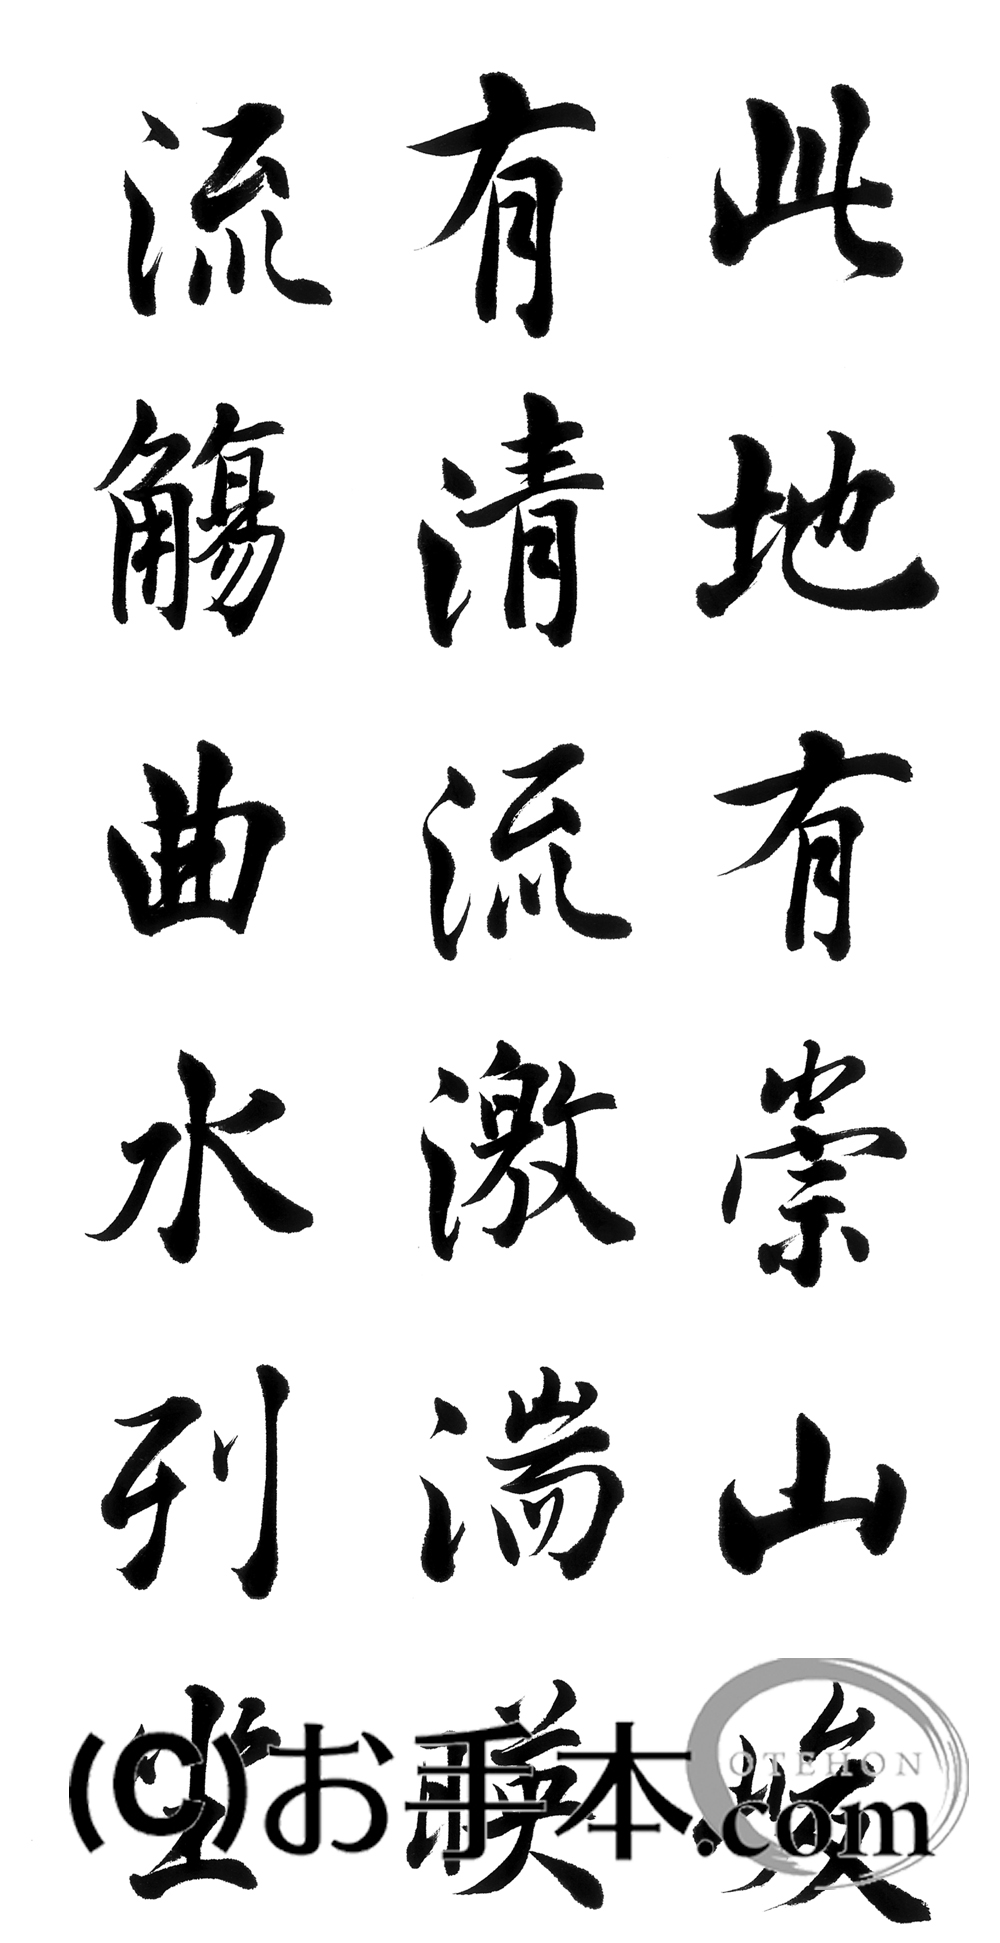 此地有崇山峻
有清流激湍暎
流觴曲水列坐
OTEHON
(C)お手本.com